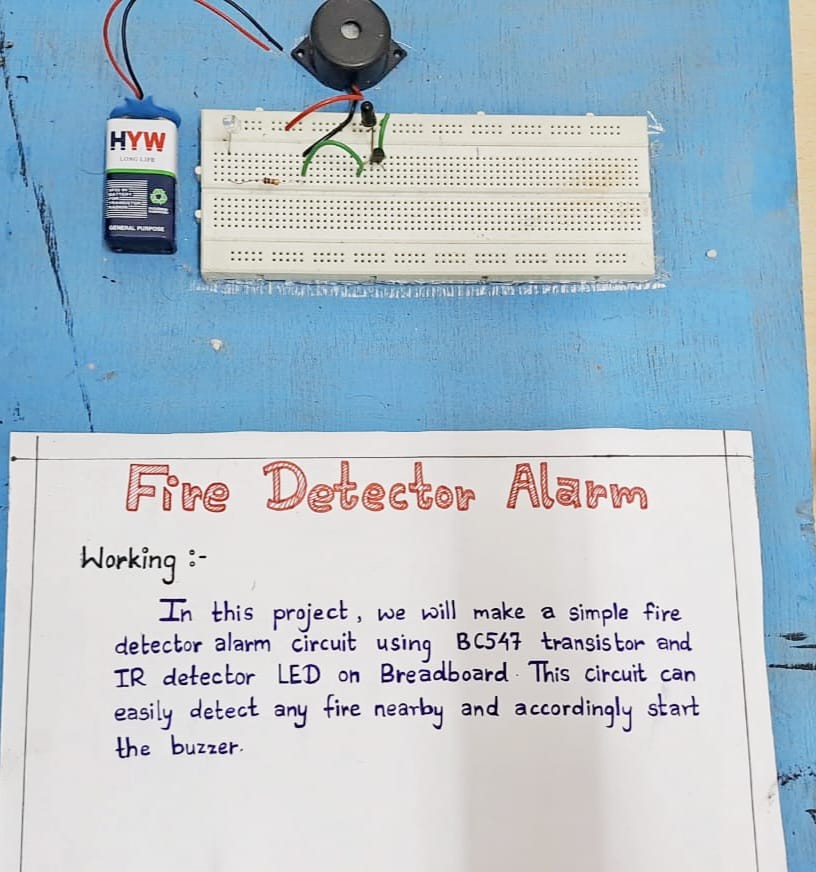 HYW
LONG LIFE
GENERAL PURPOSE
Fire Detector Alarm
Working :-
In this project, we will make a simple fire
detector alarm circuit using BC547 transistor and
IR detector LED on Breadboard. This circuit can
easily detect any fire nearby and accordingly start
the buzzer.